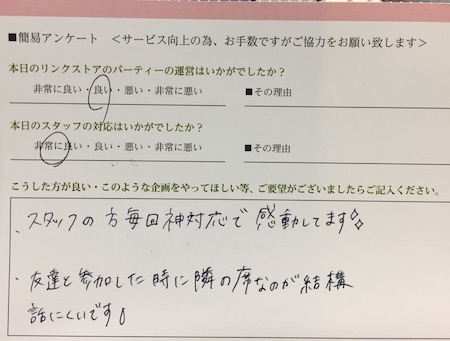 ■簡易アンケート ＜サービス向上の為、お手数ですがご協力をお願い致します＞
本日のリンクストアのパーティーの運営はいかがでしたか？
非常に良い・良い・悪い・非常に悪い ■その理由
本日のスタッフの対応はいかがでしたか？
非常に良い・良い・悪い・非常に悪い ■その理由
こうした方が良い・このような企画をやってほしい等、ご要望がございましたらご記入ください。
・スタッフの方毎回神対応で感動してます
・友達と参加した時に隣の席なのが結構
話にくいです!